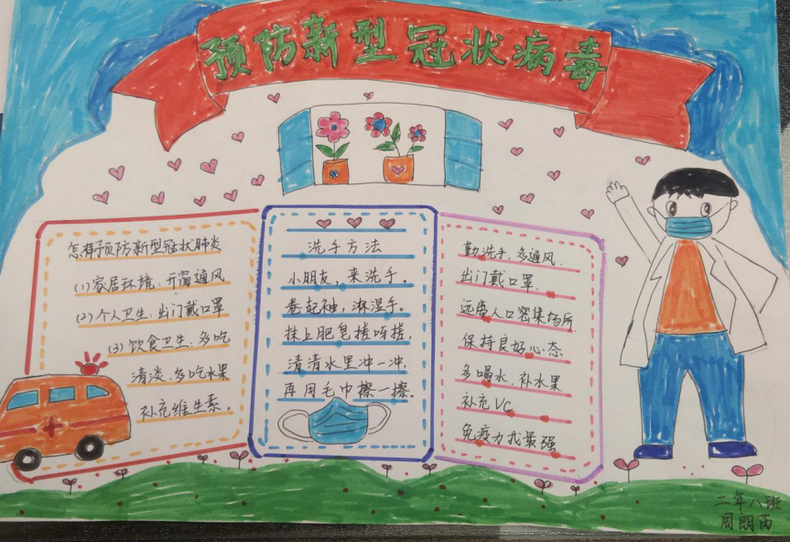 预防新型冠状病毒
怎样预防新型冠状肺炎
(1)家居环境、开窗通风
(2)个人卫生、出门戴口罩
(3)饮食卫生、多吃
清淡、多吃水果
补充维生素。
洗手方法
小朋友，来洗手。
卷起袖，淋湿手。
抹上肥皂搓呀搓，
清清水里冲一冲，
再用毛巾擦一擦。
勤洗手，多通风，
出门戴口罩，
远离人口密集场所，
保持良好心态
多喝水、补水果
补充VC
免疫力我最强
二年八班
周朗苒